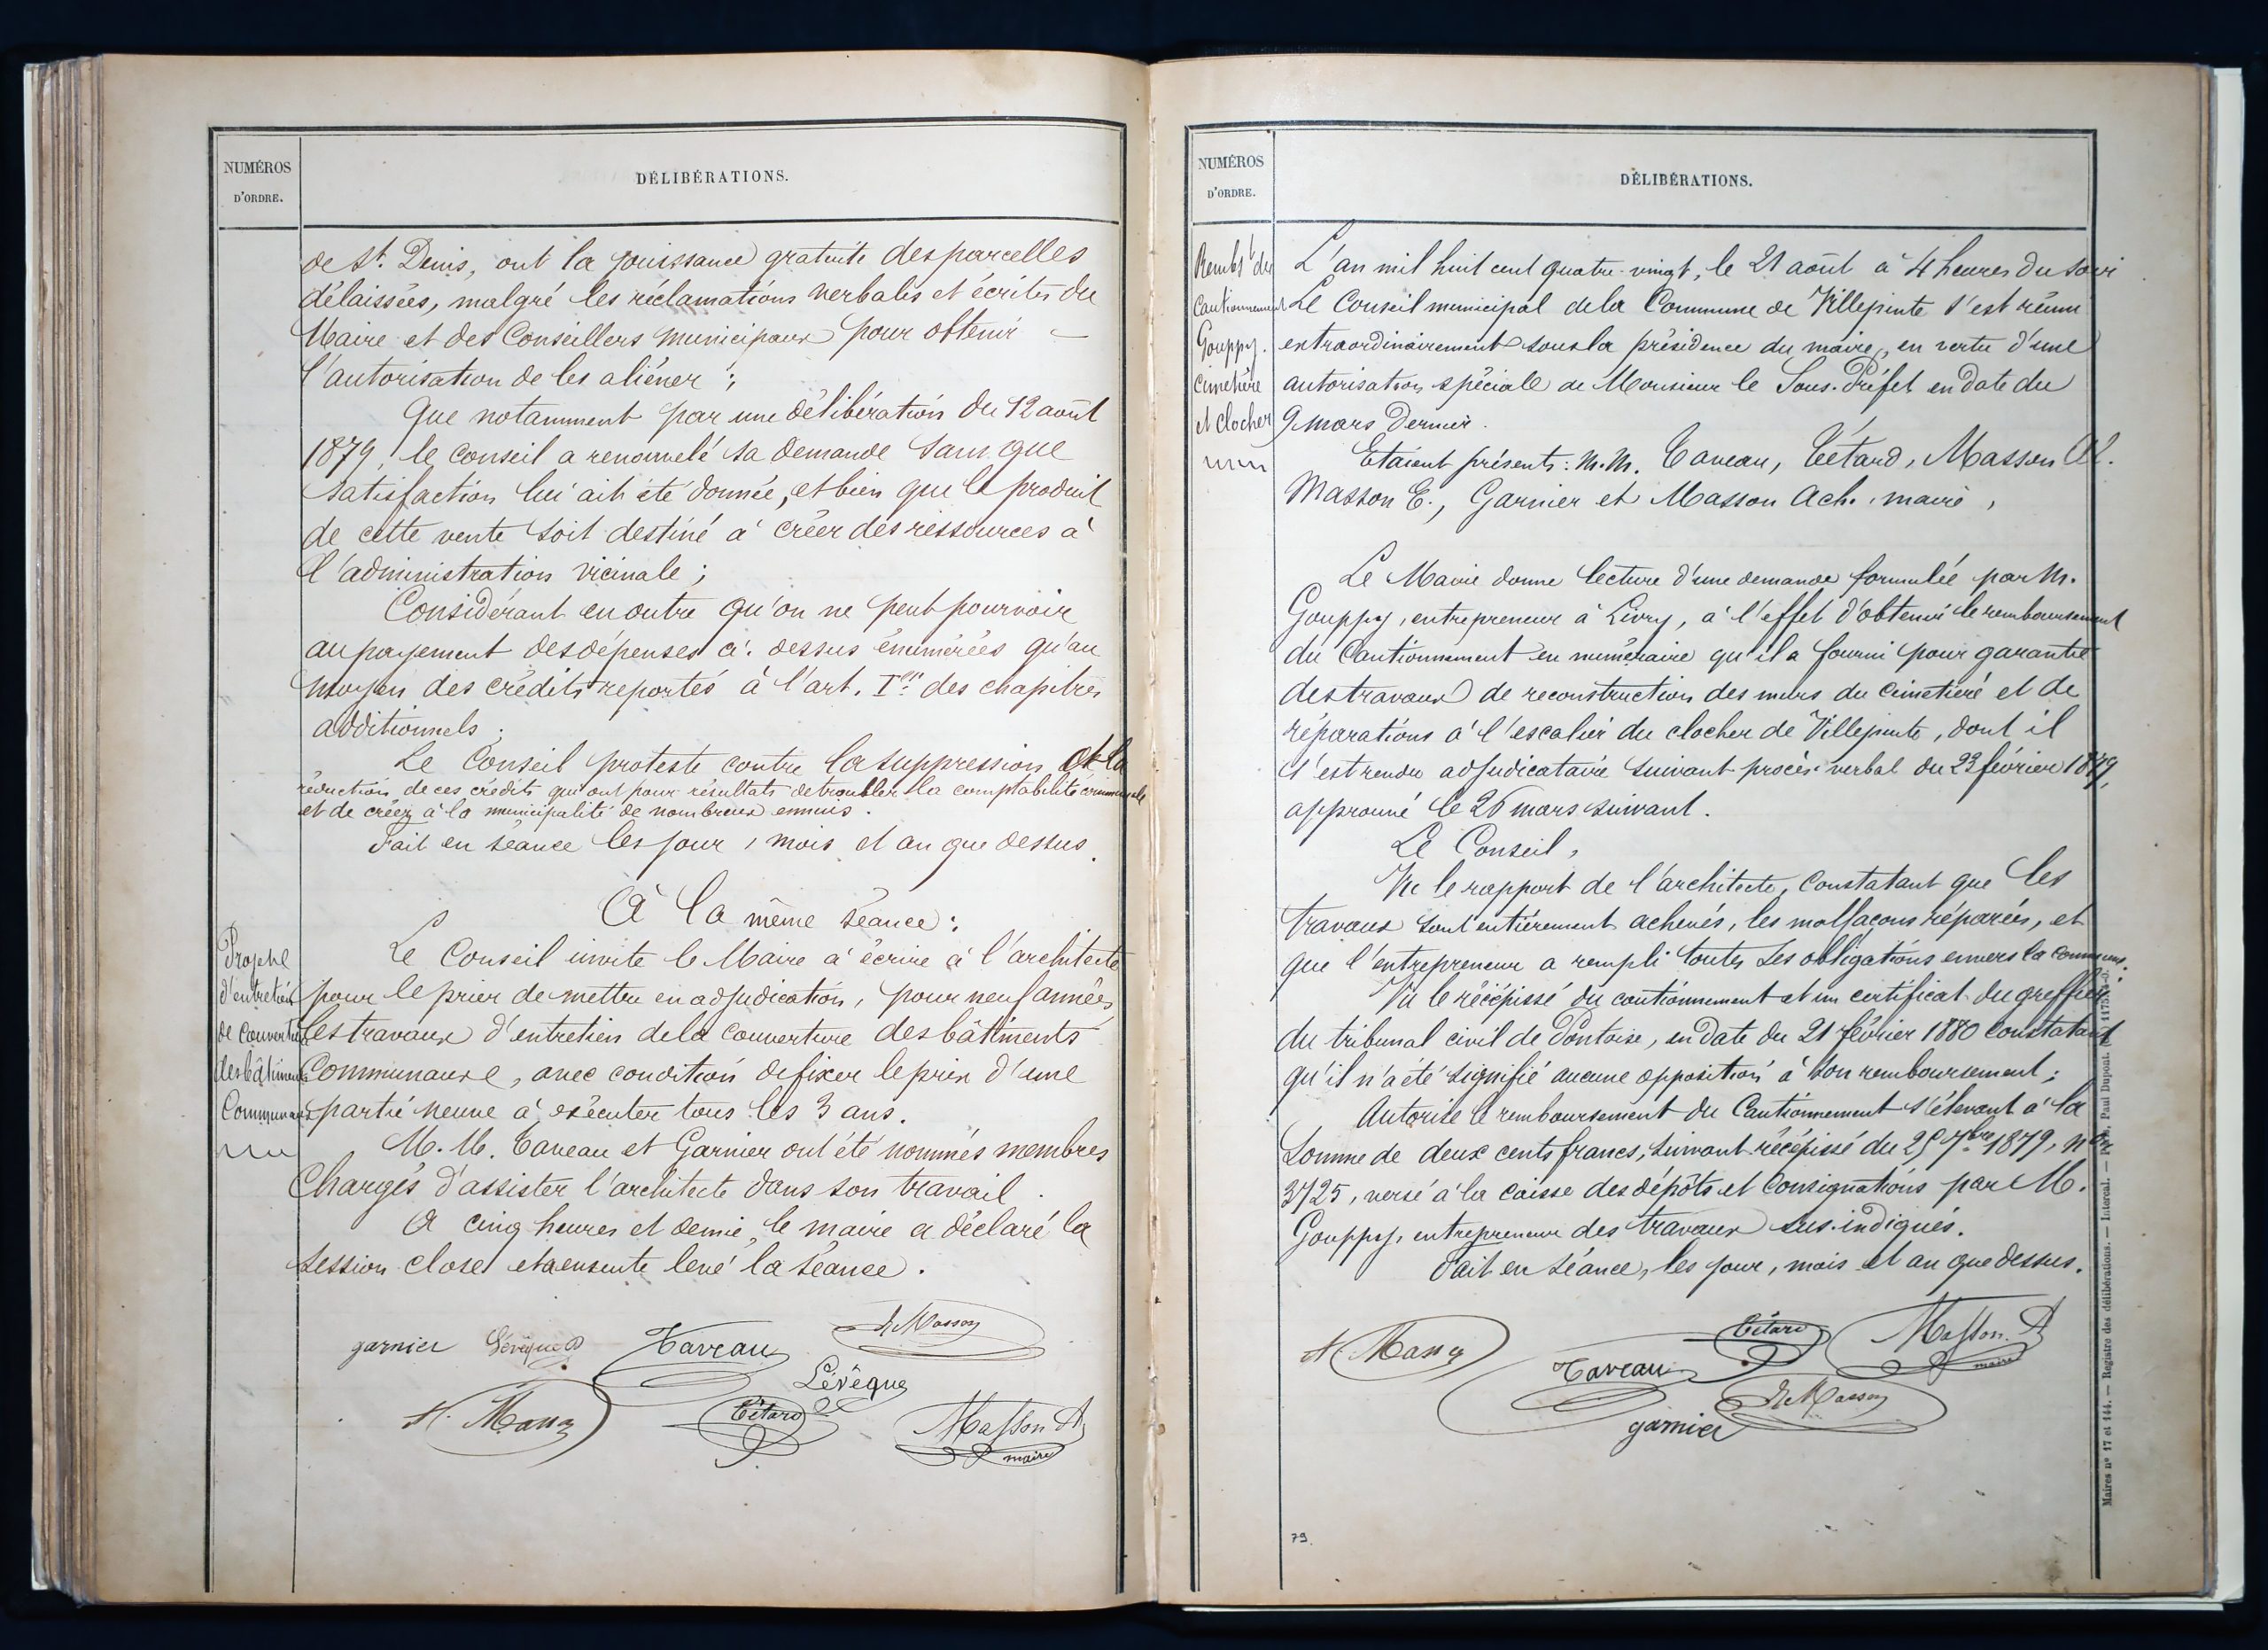 NUMÉROS
D'ORDRE.
DÉLIBÉRATIONS.
de St. Denis, ont la jouissance gratuite des parcelles
délaissées, malgré les réclamations verbales et écrites du
Maire et des Conseillers municipaux pour obtenir
l'autorisation de les aliéner ;
Que notamment par une délibération du 12 août
1879, le conseil a renouvelé sa demande sans que
satisfaction lui ait été donnée, et bien que le produit
de cette vente soit destiné à créer des ressources à
l'administration vicinale ;
Considérant en outre qu'on ne peut pourvoir
au payement des dépenses ci-dessus énumérées qu'au
moyen des crédits reportés à l'art. Ier des chapitres
additionnels ;
Le Conseil proteste contre la suppression et la
réduction de ces crédits qui ont pour résultats de troubler la comptabilité communale
et de créer à la municipalité de nombreux ennuis.
Fait en séance les jour, mois et an que dessus.
À la même séance :
Projet
d'entretien
de couverture
des bâtiments
Communaux
Le Conseil invite le Maire à écrire à l'architecte
pour le prier de mettre en adjudication, pour neuf années,
les travaux d'entretien de la couverture des bâtiments
Communaux, avec condition de fixer le prix d'une
partie neuve à exécuter tous les 3 ans.
M. M. Taveau et Garnier ont été nommés membres
Chargés d'assister l'architecte dans son travail.
A cinq heures et demie, le maire a déclaré la
session close et a ensuite levé la séance.
garnier Lévêque Taveau E Masson
Lévêque
Tétard Masson A
maire
NUMÉROS
D'ORDRE.
DÉLIBÉRATIONS.
Rembt du
Cautionnement
Gouppy.
cimetière
et clocher
L'an mil huit cent quatre-vingt, le 21 août à 4 heures du soir
Le Conseil municipal de la Commune de Villepinte s'est réuni
extraordinairement sous la présidence du maire, en vertu d'une
autorisation spéciale de Monsieur le Sous-Préfet en date du
9 mars dernier.
Etaient présents : M.M. Taveau, Tétard, Masson Al.
Masson E., Garnier et Masson Ach. maire,
Le Maire donne lecture d'une demande formulée par M.
Gouppy, entrepreneur à Livry, à l'effet d'obtenir le remboursement
du Cautionnement en numéraire qu'il a fourni pour garantie
des travaux de reconstruction des murs du cimetière et de
réparations à l'escalier du clocher de Villepinte, dont il
s'est rendu adjudicataire suivant procès-verbal du 23 février 1879,
approuvé le 26 mars suivant.
Le Conseil,
Vu le rapport de l'architecte, constatant que les
travaux sont entièrement achevés, les malfaçons réparées, et
que l'entrepreneur a rempli toutes ses obligations envers la commune.
Vu le récépissé du cautionnement et un certificat du greffier
du tribunal civil de Pontoise, en date du 21 février 1880 constatant
qu'il n'a été signifié aucune opposition à son remboursement ;
Autorise le remboursement du Cautionnement s'élevant à la
Somme de deux cents francs, suivant récépissé du 25 7bre 1879, no
3725, versé à la caisse des dépôts et Consignations par M.
Gouppy, entrepreneur des travaux sus-indiqués.
Fait en séance, les jour, mois et an que dessus.
Tétard Masson. A
maire
Taveau
E Masson
garnier
79.
Maires nos 17 et 144. — Registre des délibérations. — Intercal. — Paul Dupont.